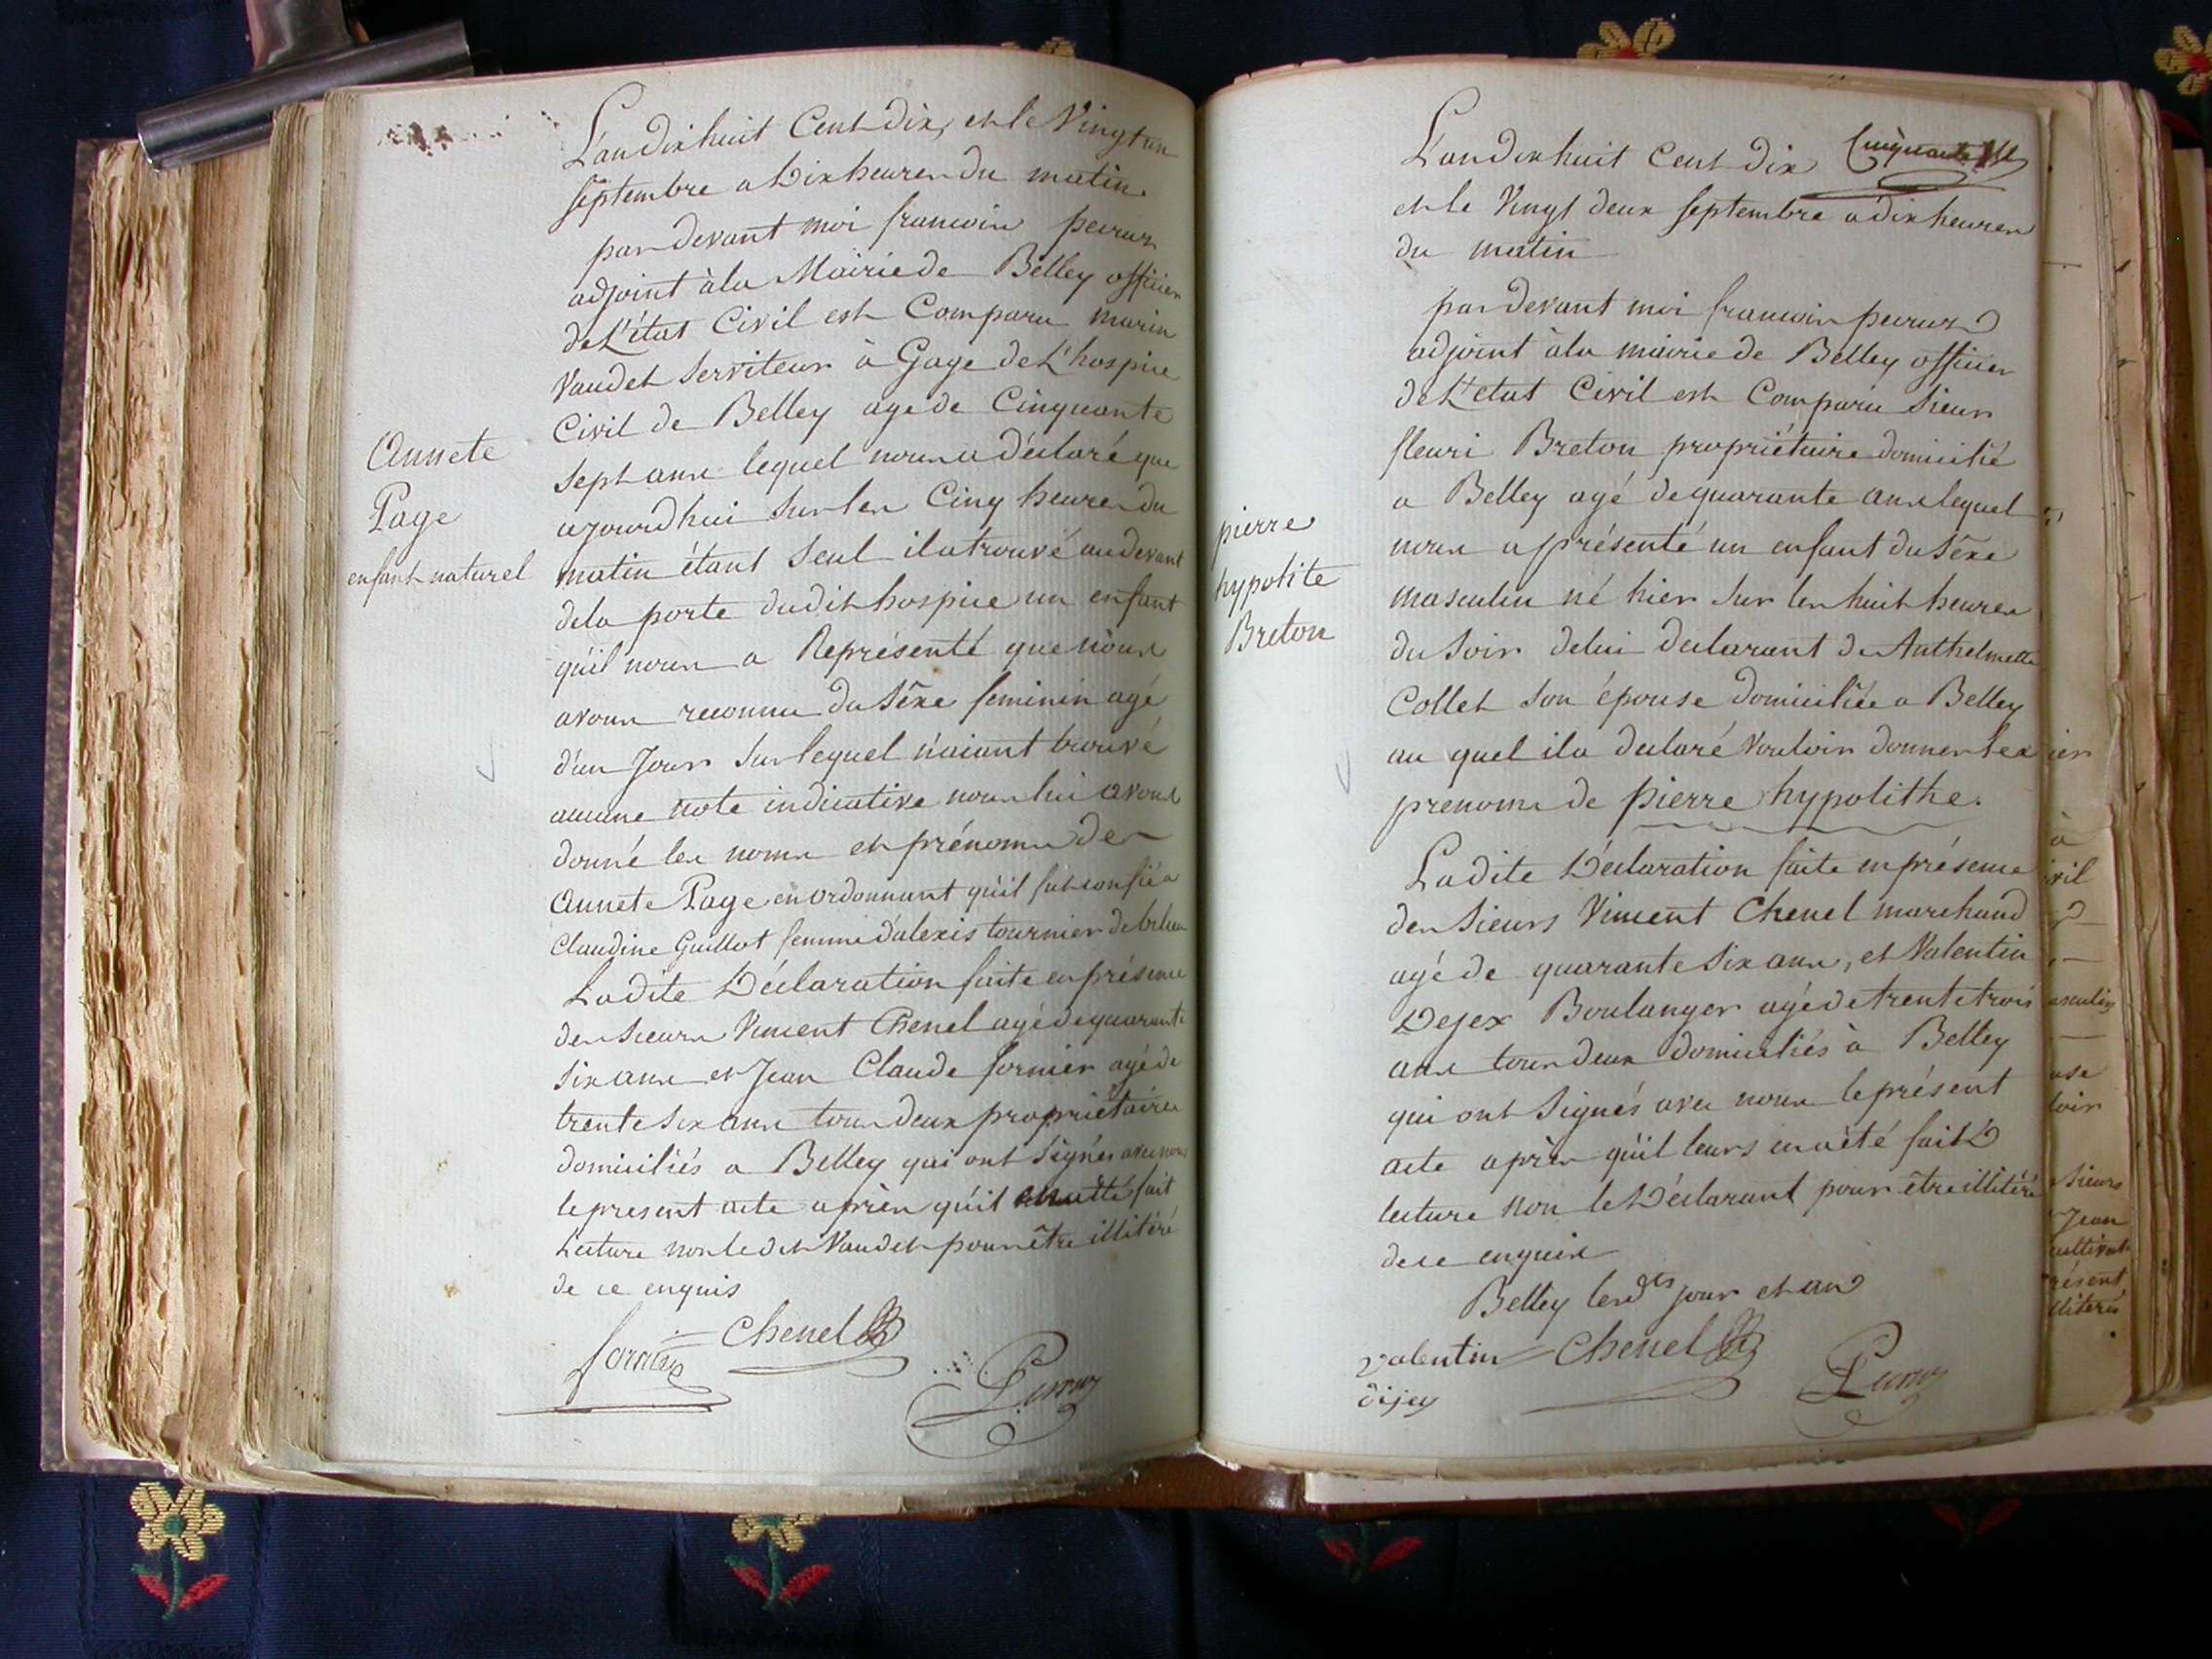 L'an dix huit Cent dix, et le Vingt un
septembre a Dix heures du matin.
par devant moi francois peirus
adjoint à la Mairie de Belley officier
de L'état Civil est Comparu marin
Vaudet Serviteur à Gage de L'hospice
Civil de Belley age de Cinquante
sept ans lequel nous a déclaré que
ajourd'hui sur les Cinq heures du
matin étant Seul il a trouvé au devant
de la porte dudit hospice un enfant
qu'il nous a Représenté que nous
avons reconnu du Sêxe feminin agé
d'un Jour sur lequel n'aiant trouvé
aucune note indicative nous lui avons
donné les noms et prénoms de
Annete Page en ordonnant qu'il fut confié a
Claudine Guillot femme d'alexis tournier de
La dite Déclaration faite en présence
des sieurs Vincent Chenel agé de quarante
six ans et Jean Claude fornier agé de
trente six ans tous deux propriétaires
domiciliés a Belley qui ont Signés avec nous
le present acte après qu'il fait
Lecture non ledit Vaudet pour être illitéré
de ce enquis
fornier Chenel
Annete
Page
enfant naturel
L'an dix huit Cent dix Cinquante
et le Vingt deux septembre a dix heures
du matin
par devant moi francois peirus
adjoint à la mairie de Belley officier
de L'etat Civil est Comparu Sieur
fleuri Breton propriétaire domicilié
a Belley agé de quarante ans lequel
nous a présenté un enfant du Sêxe
masculin né hier sur les huit heures
du Soir de lui declarant de Anthelmette
Collet son épouse domiciliée a Belley
au quel il a declaré Vouloir donner les
prenoms de pierre hypolithe.
La dite Déclaration faite en présence
des Sieurs Vincent Chenel marchand
agé de quarante Six ans, et Valentin
Dejex Boulanger agé de trente trois
ans tous deux domiciliés à Belley
qui ont Signés avec nous le présent
acte après qu'il leurs en a été fait
lecture non le Déclarant pour être illitéré
de ce enquis
Belley les dts jour et an
valentin Chenel
dijey
pierre
hypolite
Breton